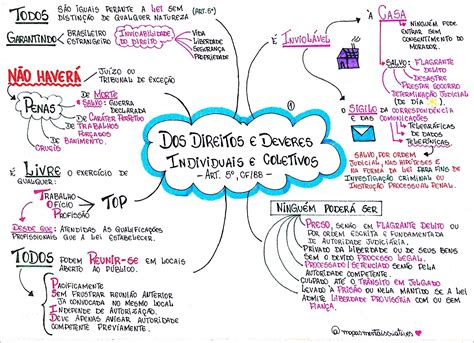 TODOS SÃO IGUAIS PERANTE A LEI SEM
DISTINÇÃO DE QUALQUER NATUREZA (ART. 5º)
GARANTINDO
BRASILEIRO
ESTRANGEIRO
INVIOLABILIDADE
DO DIREITO
VIDA
LIBERDADE
SEGURANÇA
PROPRIEDADE
NÃO HAVERÁ
JUÍZO OU
TRIBUNAL DE EXCEÇÃO
PENAS
DE MORTE
SALVO: GUERRA
DECLARADA
DE CARÁTER PERPÉTUO
DE TRABALHOS
FORÇADOS
DE BANIMENTO
CRUÉIS
É LIVRE O EXERCÍCIO DE
QUALQUER:
TRABALHO
OFÍCIO
PROFISSÃO
TOP
DESDE QUE: ATENDIDAS AS QUALIFICAÇÕES
PROFISSIONAIS QUE A LEI ESTABELECER.
TODOS PODEM REUNIR-SE EM LOCAIS
ABERTO AO PÚBLICO.
PACIFICAMENTE
SEM FRUSTRAR REUNIÃO ANTERIOR
JÁ CONVOCADA NO MESMO LOCAL
INDEPENDE DE AUTORIZAÇÃO
DEVE APENAS AVISAR AUTORIDADE
COMPETENTE PREVIAMENTE.
1
DOS DIREITOS E DEVERES
INDIVIDUAIS E COLETIVOS
- ART. 5º, CF/88 -
É INVIOLÁVEL
A CASA
NINGUÉM PODE
ENTRAR SEM
CONSENTIMENTO DO
MORADOR.
SALVO: FLAGRANTE
DELITO
DESASTRE
PRESTAR SOCORRO
DETERMINAÇÃO JUDICIAL
(DE DIA)
O SIGILO DA CORRESPONDÊNCIA
E DAS COMUNICAÇÕES
TELEGRÁFICAS
DE DADOS
TELEFÔNICAS
SALVO, POR ORDEM
JUDICIAL, NAS HIPÓTESES E
NA FORMA DA LEI PARA FINS DE
INVESTIGAÇÃO CRIMINAL OU
INSTRUÇÃO PROCESSUAL PENAL.
NINGUÉM PODERÁ SER
PRESO, SENÃO EM FLAGRANTE DELITO OU
POR ORDEM ESCRITA E FUNDAMENTADA
DE AUTORIDADE JUDICIÁRIA.
PRIVADO DA LIBERDADE OU DE SEUS BENS
SEM O DEVIDO PROCESSO LEGAL.
PROCESSADO / SETENCIADO SENÃO PELA
AUTORIDADE COMPETENTE.
CULPADO ATÉ O TRÂNSITO EM JULGADO
LEVADO À PRISÃO OU NELA MANTIDO SE A LEI
ADMITE LIBERDADE PROVISÓRIA COM OU SEM
FIANÇA.